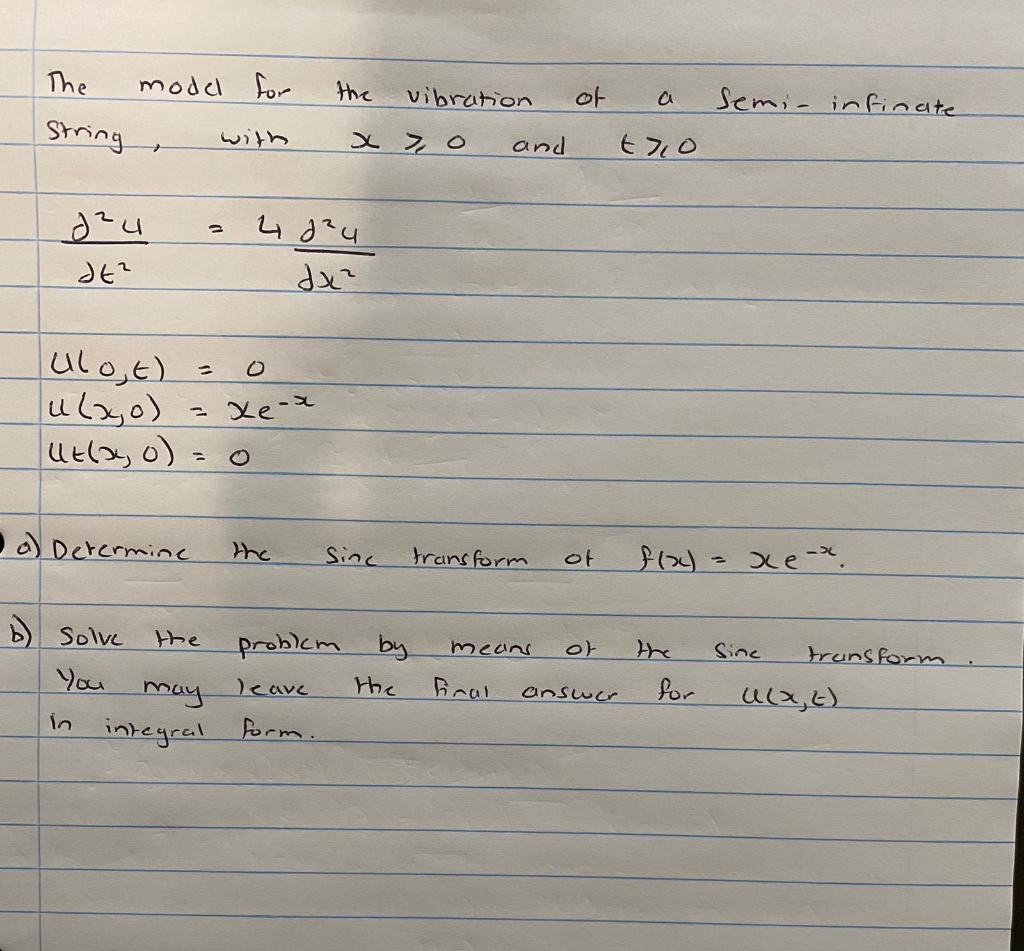 The model for the vibration of a semi-infinate
string, with x ⩾ 0 and t ⩾ 0
∂²u = 4 ∂²u
∂t² ∂x²
u(0,t) = 0
u(x,0) = xe⁻ˣ
ut(x,0) = 0
a) Determine the sine transform of f(x) = xe⁻ˣ.
b) Solve the problem by means of the sine transform.
You may leave the final answer for u(x,t)
in integral form.